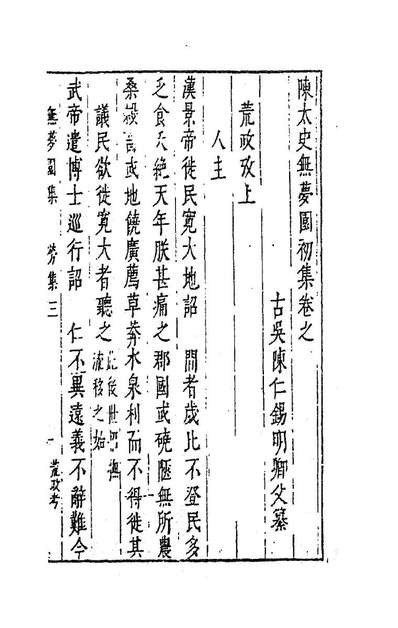 陳太史無夢園初集卷之
古吳陳仁錫明卿父纂
荒政攷上
人主
漢景帝徙民寛大地詔 間者歲比不登民多
乏食夭絶天年朕甚痛之郡國或磽陿無所農
桑𣪠畜或地饒廣薦草莽水泉利而不得徙其
議民欲徙寛大者聽之
流移之始
武帝遣博士巡行詔 仁不異遠義不辭難今
無夢園集 勞集三 一 荒政考